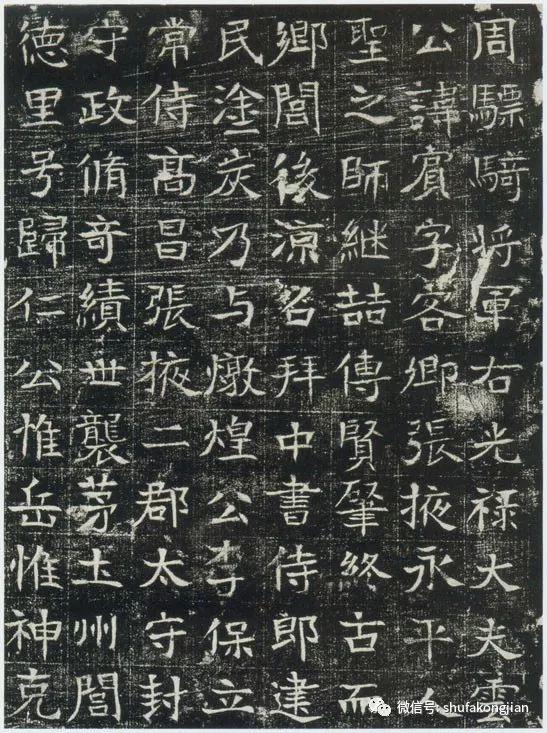 周驃騎将軍右光禄大夫雲
公諱賓字客卿張掖永平人
聖之師継喆傳賢肇終古而
鄉閭後涼名拜中書侍郎建
民塗炭乃与燉煌公李保立
常侍髙昌張掖二郡太守封
守政脩竒績世襲茅土州閭
徳里号歸仁公惟岳惟神克
微信号: shufakongjian